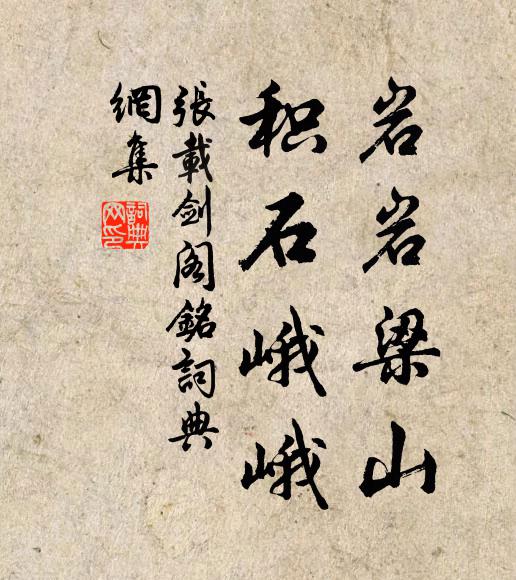 岩岩梁山
积石峨峨
張載剑阁銘詞典
網集
詞典
网印